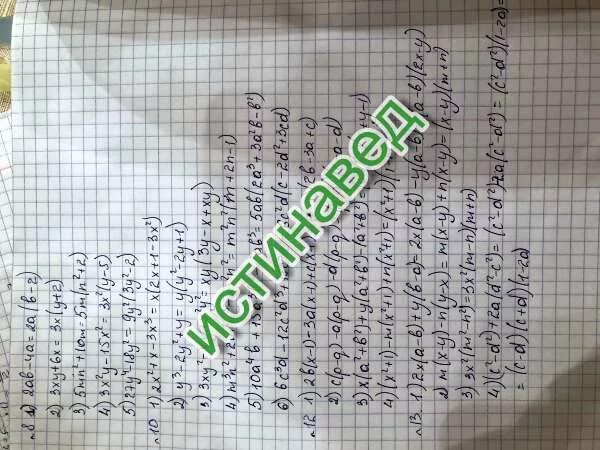 №8 1) 2ab-4a=2a(b-2)
2) 3xy+6x=3x(y+2)
3) 5mn²+10m=5m(n²+2)
4) 3x²y-15x²=3x²(y-5)
5) 27y⁴-18y²=9y²(3y²-2)
№10 1) 2x²+x-3x³=x(2x+1-3x²)
2) y³-2y²+y=y(y²-2y+1)
3) 3xy² y²=xy(3y-x+xy)
4) m³n² n²=m²n²(m+2n-1)
5) 10a⁴b+15a b³=5ab(2a³+3a²b-b²)
6) 6c³d-12c²d² d(c-2d²+3cd)
№12 1) 2b(x-1)-3a(x-1)+c(x 2b-3a+c)
2) c(p-q)-a(p-q)-d(p-q) a-d)
3) x(a²+b²)+y(a²+b²)-(a²+b²)= +y-1)
4) (x²+1)-n(x²+1)+m(x²+1)=(x²+1)(
№13. 1) 2x(a-b)+y(b-a)=2x(a-b)-y(a-b)=(a-b)(2x-y)
2) m(x-y)-n(y-x)=m(x-y)+n(x-y)=(x-y)(m+n)
3) 3x²(m²-n²)=3x²(m-n)(m+n)
4) (c²-d²)+2a(d²-c²)=(c²-d²)-2a(c²-d²)=(c²-d²)(1-2a)=
=(c-d)(c+d)(1-2a)
ИСТИНАВЕД